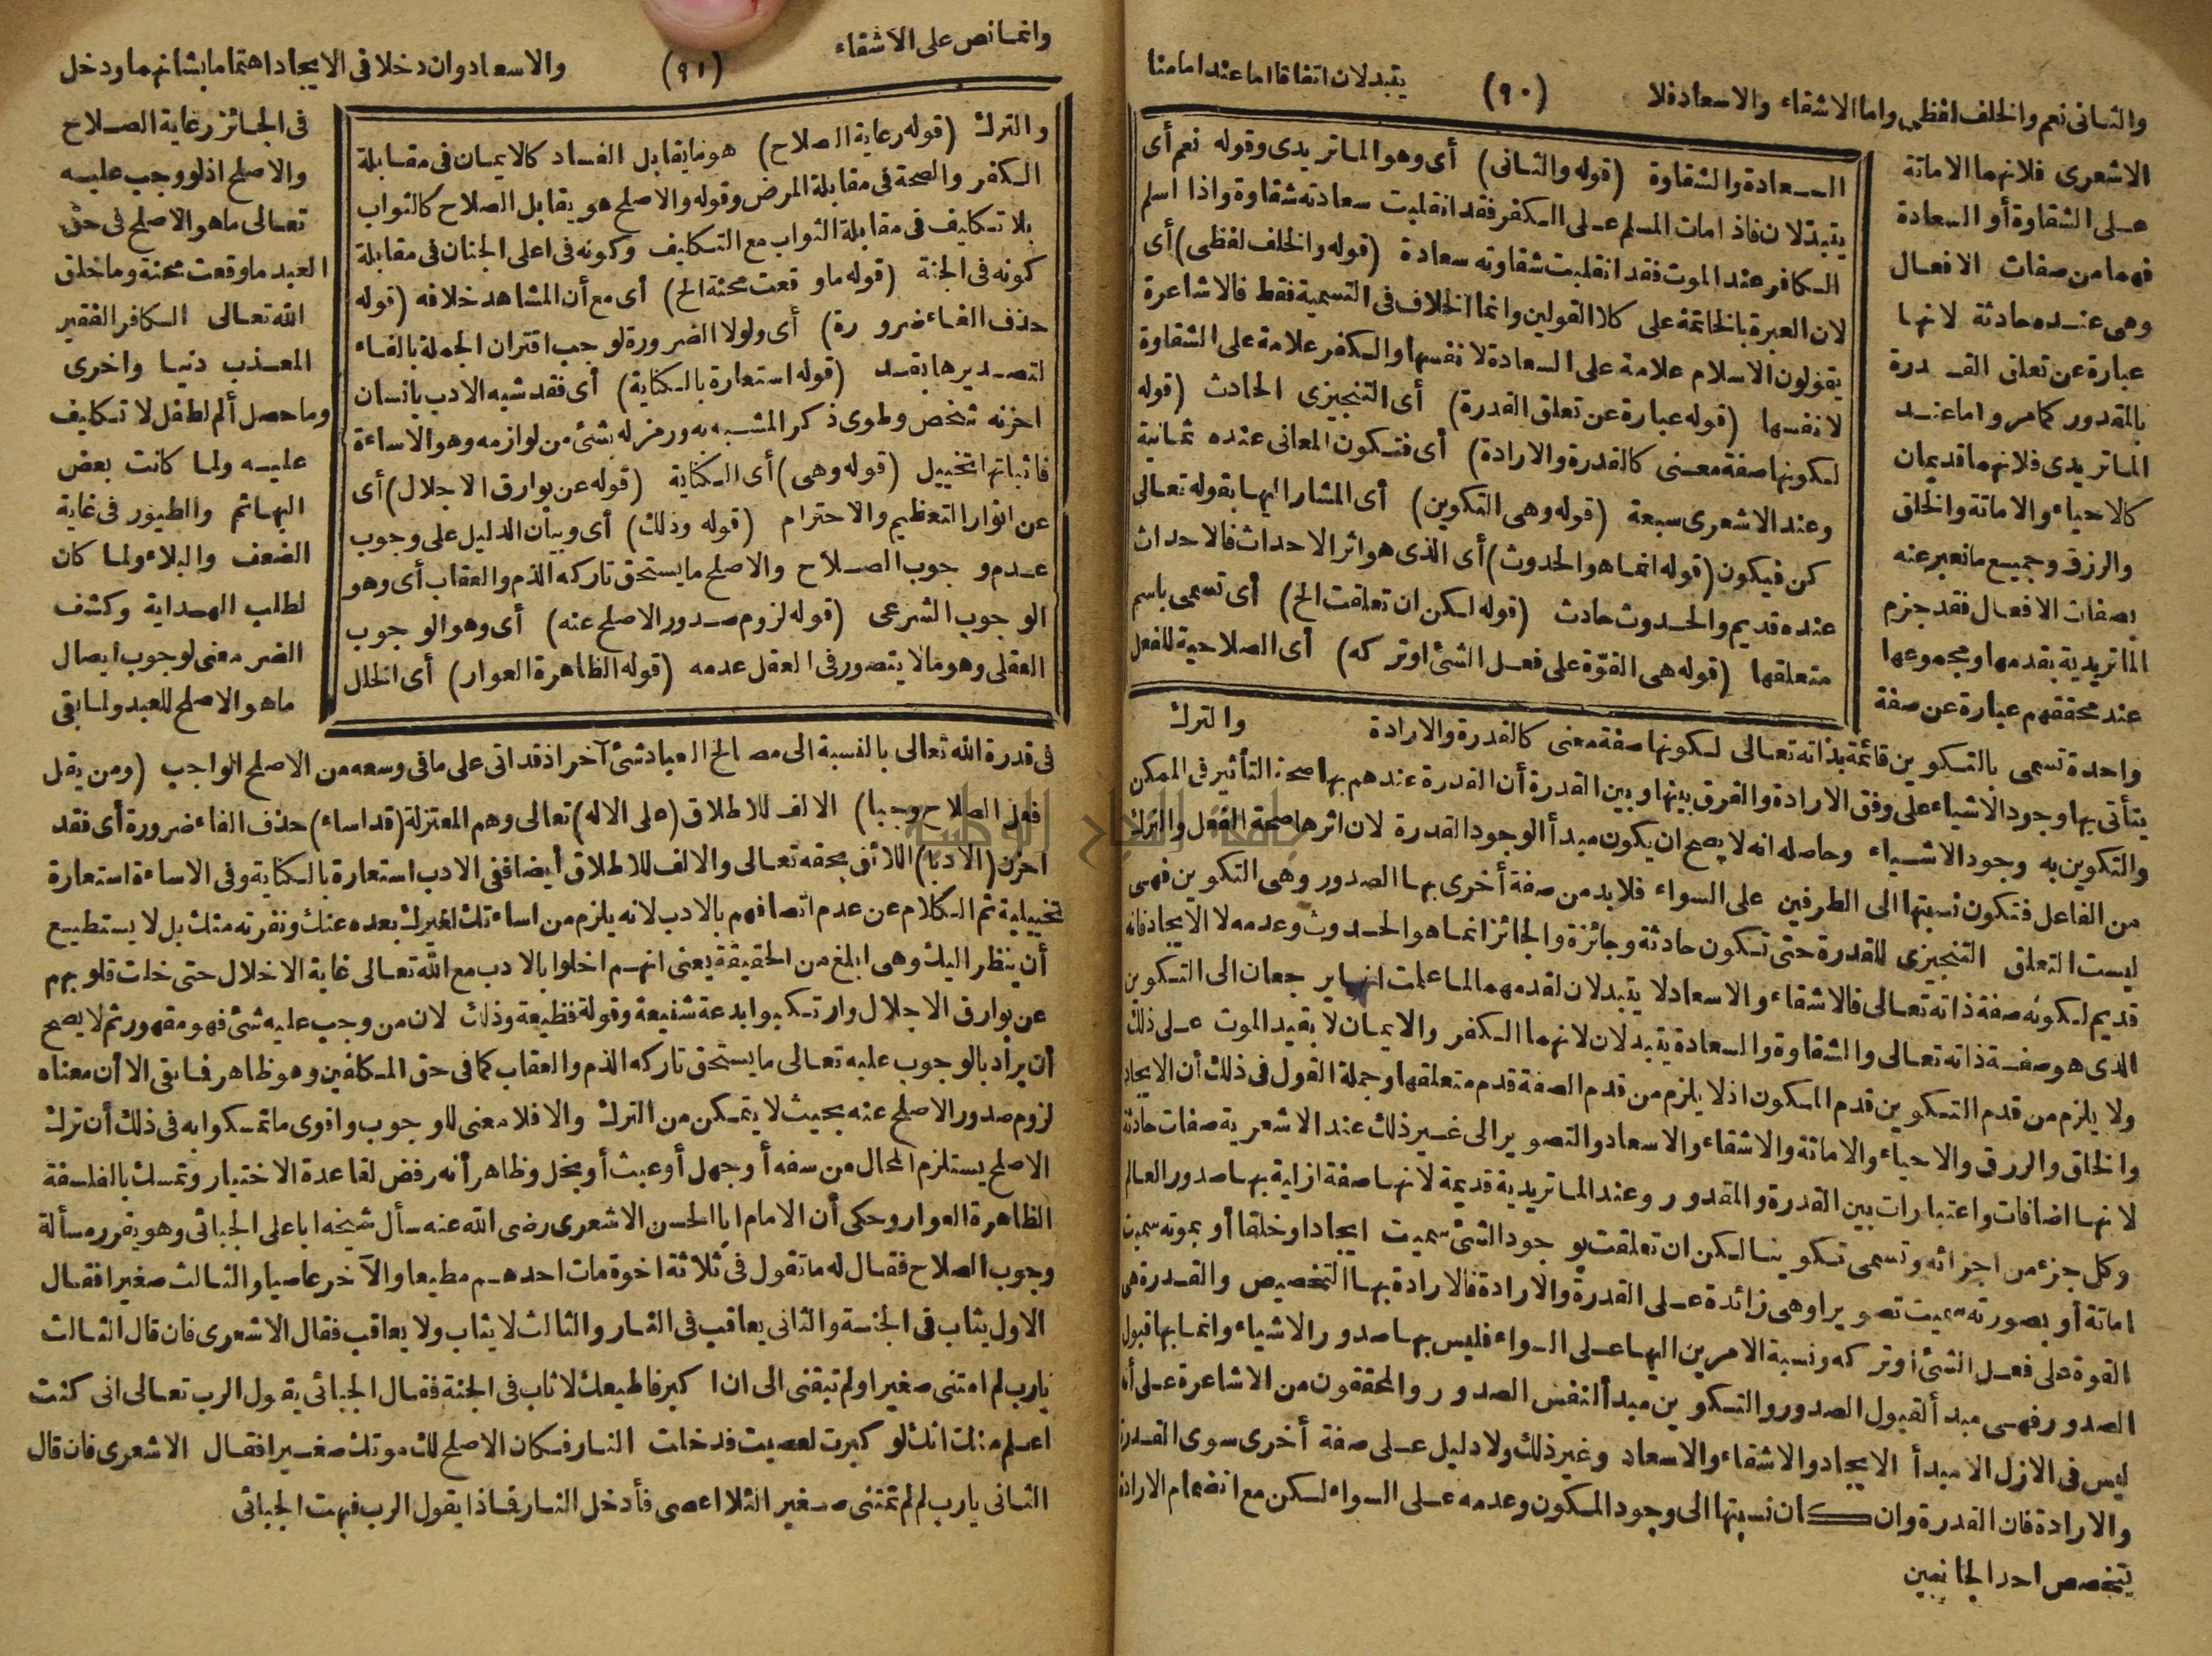 والثانى نعم والخلف لفظى واما الاشقاء والاسعاد فلا (٩٠) يتبدلان اتفاقا اما عند امامنا
الاشعرى فلانهما الاماتة
على الشقاوة أو السعادة
فهما من صفات الافعال
وهى عنده حادثة لانها
عبارة عن تعلق القدرة
بالمقدور كما مر واما عند
الماتريدى فلانهما قديمان
كالاحياء والاماتة والخلق
والرزق وجميع ما نعبر عنه
بصفات الافعال فقد جزم
الماتريدية بقدمها ومجموعها
عند محققهم عبارة عن صفة
السعادة والشقاوة (قوله والثانى) أى وهو الماتريدى وقوله نعم أى
يتبدلان فاذا مات المسلم على الكفر فقد انقلبت سعادته شقاوة واذا اسلم
الكافر عند الموت فقد انقلبت شقاوته سعادة (قوله والخلف لفظى) أى
لان العبرة بالخاتمة على كلا القولين وانما الخلاف فى التسمية فقط فالاشاعرة
يقولون الاسلام علامة على السعادة لا نفسها والكفر علامة على الشقاوة
لا نفسها (قوله عبارة عن تعلق القدرة) أى التنجيزى الحادث (قوله
لكونها صفة معنى كالقدرة والارادة) أى فتكون المعانى عنده ثمانية
وعند الاشعرى سبعة (قوله وهى التكوين) أى المشار اليها بقوله تعالى
كن فيكون (قوله انما هو الحدوث) أى الذى هو اثر الاحداث فالاحداث
عنده قديم والحدوث حادث (قوله لكن ان تعلقت الخ) أى تسمى باسم
متعلقها (قوله هى القوّة على فعل الشئ اوتركه) أى الصلاحية للفعل
والترك
واحدة تسمى بالتكوين قائمة بذاته تعالى لكونها صفة معنى كالقدرة والارادة
يتأتى بها وجود الاشياء على وفق الارادة والفرق بينها وبين القدرة أن القدرة عندهم بها صحة التأثير فى الممكن
والتكوين به وجود الاشياء وحاصله انه لا يصح ان يكون مبدأ الوجود القدرة لان اثرها صحة الفعل والترك
من الفاعل فتكون نسبتها الى الطرفين على السواء فلا بد من صفة أخرى بها الصدور وهى التكوين فهى
ليست التعلق التنجيزى للقدرة حتى تكون حادثة وجائزة والجائز انما هو الحدوث وعدمه لا الايجاد فانه
قديم لكونه صفة ذاته تعالى فالاشقاء والاسعاد لا يتبدلان لقدمهما لما علمت انهما يرجعان الى التكوين
الذى هو صفة ذاته تعالى والشقاوة والسعادة يتبدلان لانهما الكفر والايمان لا بقيد الموت على ذلك
ولا يلزم من قدم التكوين قدم المكون اذ لا يلزم من قدم الصفة قدم متعلقها وجملة القول فى ذلك أن الايجاد
والخلق والرزق والاحياء والاماتة والاشقاء والاسعاد والتصوير الى غير ذلك عند الاشعرية صفات حادثة
لانها اضافات واعتبارات بين القدرة والمقدور وعند الماتريدية قديمة لانها صفة ازلية بها صدور العالم
وكل جزء من اجزائه وتسمى تكوينا لكن ان تعلقت بوجود الشئ سميت ايجادا وخلقا أو بموته سميت
اماتة أو بصورته سميت تصويرا وهى زائدة على القدرة والارادة فالارادة بها التخصيص والقدرة هى
القوة على فعل الشئ اوتركه ونسبة الامرين اليها على السواء فليس بها صدور الاشياء وانما بها قبول
الصدور فهى مبدأ لقبول الصدور والتكوين مبدأ لنفس الصدور والمحققون من الاشاعرة على أنه
ليس فى الازل الا مبدأ الايجاد والاشقاء والاسعاد وغير ذلك ولا دليل على صفة أخرى سوى القدرة
والارادة فان القدرة وان كان نسبتها الى وجود المكون وعدمه على السواء لكن مع انضمام الارادة
يتخصص احد الجانبين
وانما نص على الاشقاء (٩١) والاسعاد وان دخلا فى الايجاد اهتماما بشانهما ودخل
فى الجائز رعاية الصلاح
والاصلح اذ لو وجب عليه
تعالى ما هو الاصلح فى حق
العبد ما وقعت محنة وما خلق
الله تعالى الكافر الفقير
المعذب دنيا واخرى
وما حصل ألم لطفل لا تكليف
عليه ولما كانت بعض
البهائم والطيور فى غاية
الضعف والبلاء ولما كان
لطلب الهداية وكشف
الضر معنى لوجوب ايصال
ما هو الاصلح للعبد ولما بقى
والترك (قوله رعاية الصلاح) هو ما يقابل الفساد كالايمان فى مقابلة
الكفر والصحة فى مقابلة المرض وقوله والاصلح هو يقابل الصلاح كالثواب
بلا تكليف فى مقابلة الثواب مع التكليف وكونه فى اعلى الجنان فى مقابلة
كونه فى الجنة (قوله ما وقعت محنة الخ) أى مع أن المشاهد خلافه (قوله
حذف الفاء ضرورة) أى ولولا الضرورة لوجب اقتران الجملة بالفاء
لتصديرها بقد (قوله استعارة بالكناية) أى فقد شبه الادب بانسان
احزنه شخص وطوى ذكر المشبه به ورمز له بشئ من لوازمه وهو الاساءة
فاثباتها تخييل (قوله وهى) أى الكناية (قوله عن بوارق الاجلال) أى
عن انوار التعظيم والاحترام (قوله وذلك) أى وبيان الدليل على وجوب
عدم وجوب الصلاح والاصلح ما يستحق تاركه الذم والعقاب أى وهو
الوجوب الشرعى (قوله لزوم صدور الاصلح عنه) أى وهو الوجوب
العقلى وهو ما لا يتصور فى العقل عدمه (قوله الظاهرة العوار) أى الخلل
فى قدرة الله تعالى بالنسبة الى مصالح العباد شئ آخر اذ قد اتى على ما فى وسعه من الاصلح الواجب (ومن يقل
فعل الصلاح وجبا) الالف للاطلاق (على الاله) تعالى وهم المعتزلة (قد اساء) حذف الفاء ضرورة أى فقد
احزن (الادبا) اللائق بحقه تعالى والالف للاطلاق أيضا ففى الادب استعارة بالكناية وفى الاساءة استعارة
تخييلية ثم الكلام عن عدم اتصافهم بالادب لانه يلزم من اساءتك لغيرك بعده عنك ونفرته منك بل لا يستطيع
أن ينظر اليك وهى ابلغ من الحقيقة يعنى انهم اخلوا بالادب مع الله تعالى غاية الاخلال حتى خلت قلوبهم
عن بوارق الاجلال وارتكبوا بدعة شنيعة وقولة فظيعة وذلك لان من وجب عليه شئ فهو مقهور ثم لا يصح
أن يراد بالوجوب عليه تعالى ما يستحق تاركه الذم والعقاب كما فى حق المكلفين وهو ظاهر فما بقى الا أن معناه
لزوم صدور الاصلح عنه بحيث لا يتمكن من الترك والا فلا معنى للوجوب واقوى ما تمسكوا به فى ذلك أن ترك
الاصلح يستلزم المحال من سفه أو جهل أو عبث أو بخل وظاهر أنه رفض لقاعدة الاختيار وتمسك بالفلسفة
الظاهرة العوار وحكى أن الامام ابا الحسن الاشعرى رضى الله عنه سأل شيخه ابا على الجبائى وهو يقرر مسألة
وجوب الصلاح فقال له ما تقول فى ثلاثة اخوة مات احدهم مطيعا والآخر عاصيا والثالث صغيرا فقال
الاول يثاب فى الجنة والثانى يعاقب فى النار والثالث لا يثاب ولا يعاقب فقال الاشعرى فان قال الثالث
يا رب لم امتنى صغيرا ولم تبقنى الى ان اكبر فاطيعك لاثاب فى الجنة فقال الجبائى يقول الرب تعالى انى كنت
اعلم منك انك لو كبرت لعصيت فدخلت النار فكان الاصلح لك موتك صغيرا فقال الاشعرى فان قال
الثانى يا رب لم لم تمتنى صغيرا لئلا اعصى فأدخل النار فماذا يقول الرب فبهت الجبائى
جامعة النجاح الوطنية